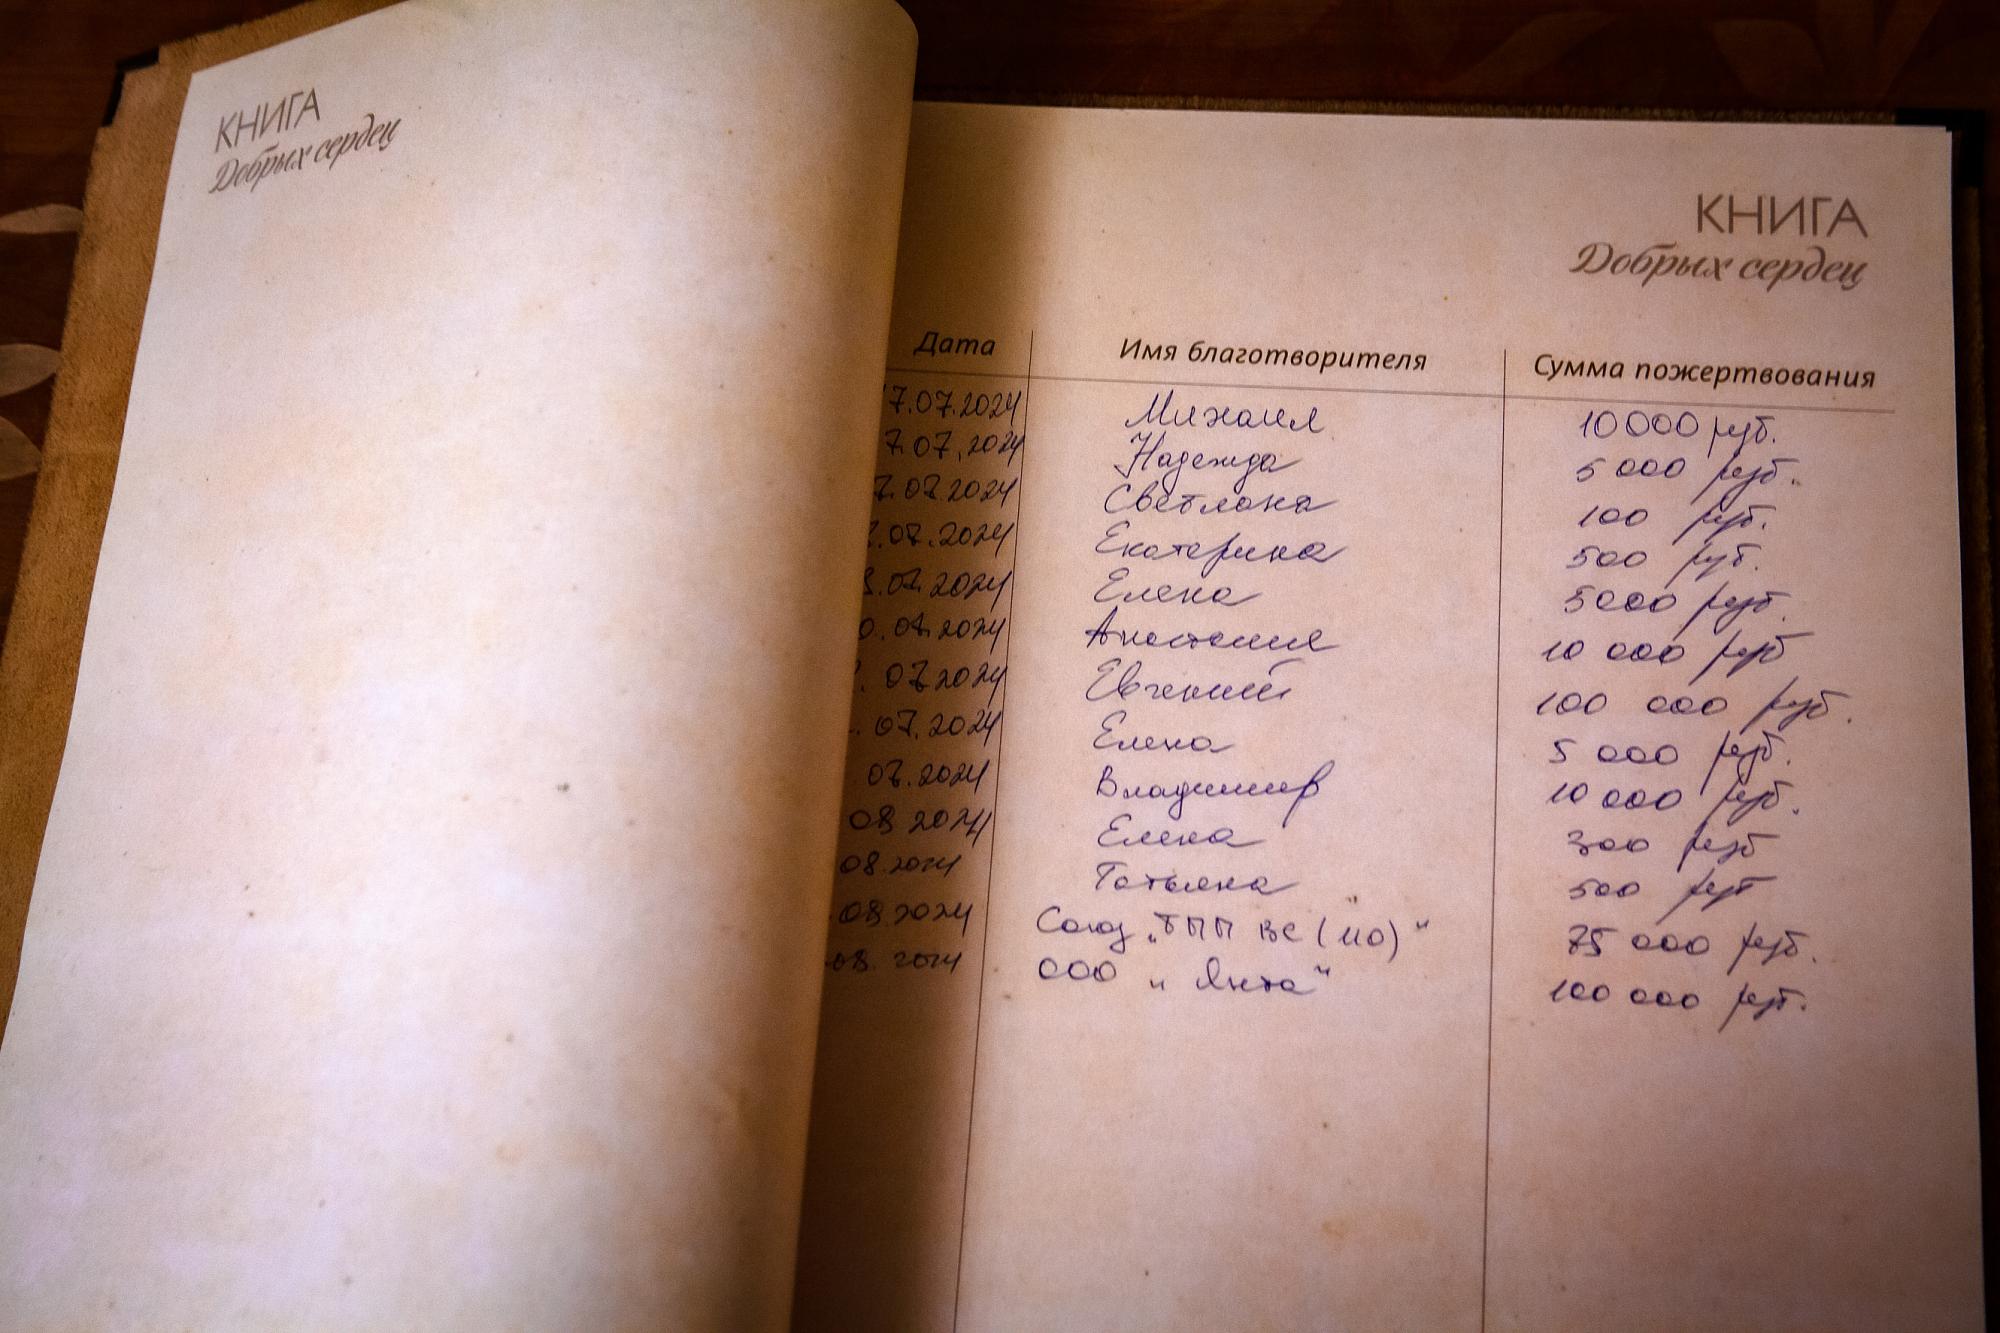 КНИГА
Добрых сердец
КНИГА
Добрых сердец
Дата Имя благотворителя Сумма пожертвования
7.07.2024 Михаил 10 000 руб.
7.07.2024 Надежда 5 000 руб.
7.07.2024 Светлана 100 руб.
7.07.2024 Екатерина 500 руб.
8.07.2024 Елена 5000 руб.
0.07.2024 Анатолий 10 000 руб
. 07.2024 Евгений 100 000 руб.
. 07.2024 Елена 5 000 руб.
07.2024 Владимир 10 000 руб.
08 2024 Елена 300 руб
08.2024 Татьяна 500 руб
.08.2024 Союз „ТПП ВС (ИО)“ 75 000 руб.
.08. 2024 ООО „Янта“ 100 000 руб.